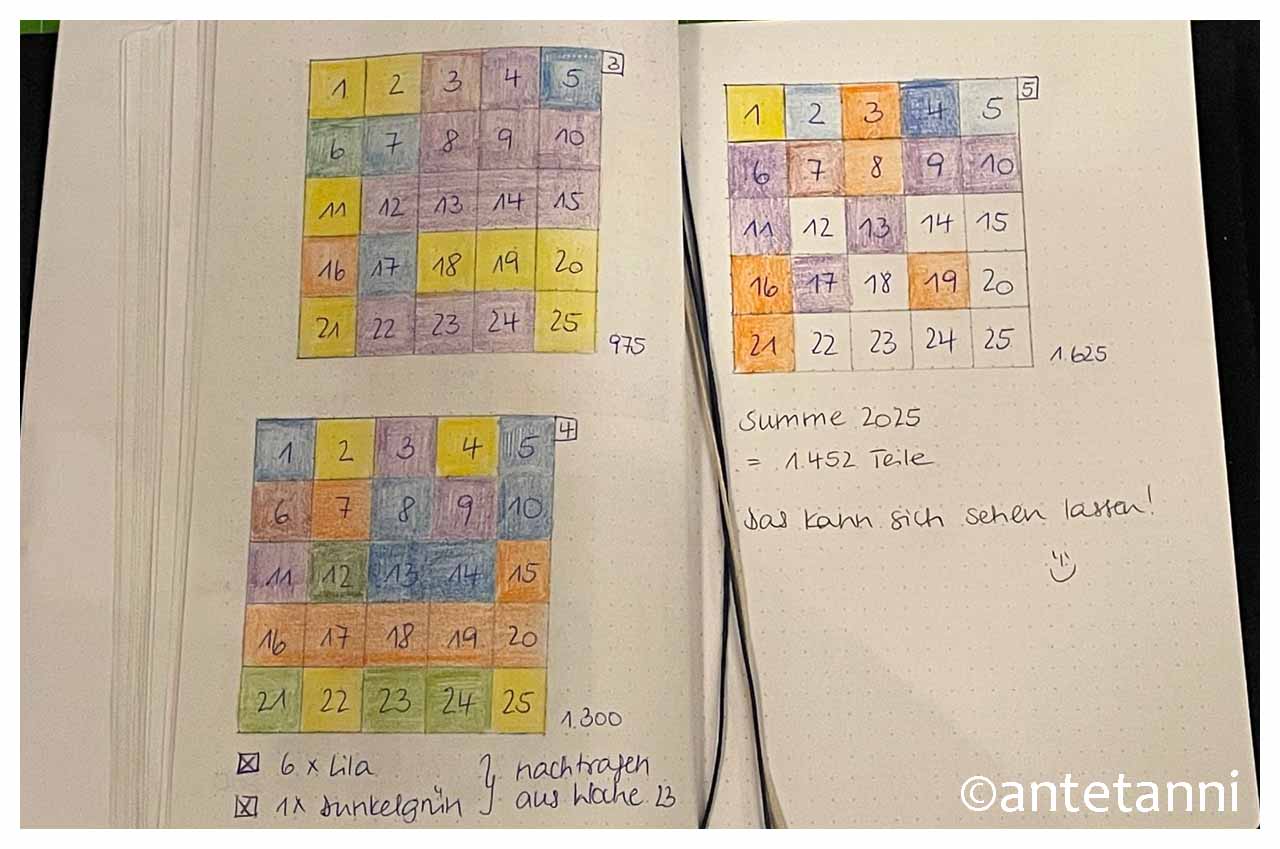 3
1 2 3 4 5
6 7 8 9 10
11 12 13 14 15
16 17 18 19 20
21 22 23 24 25
975
4
1 2 3 4 5
6 7 8 9 10
11 12 13 14 15
16 17 18 19 20
21 22 23 24 25
1.300
6 x Lila } nachtragen
1x Dunkelgrün } aus Woche 23
5
1 2 3 4 5
6 7 8 9 10
11 12 13 14 15
16 17 18 19 20
21 22 23 24 25
1.625
Summe 2025
= 1.452 Teile
Das kann sich sehen lassen!
©antetanni